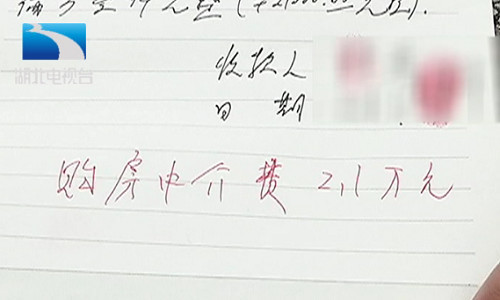 湖北电视台
收款人
日 期
购房中介费 2.1万元